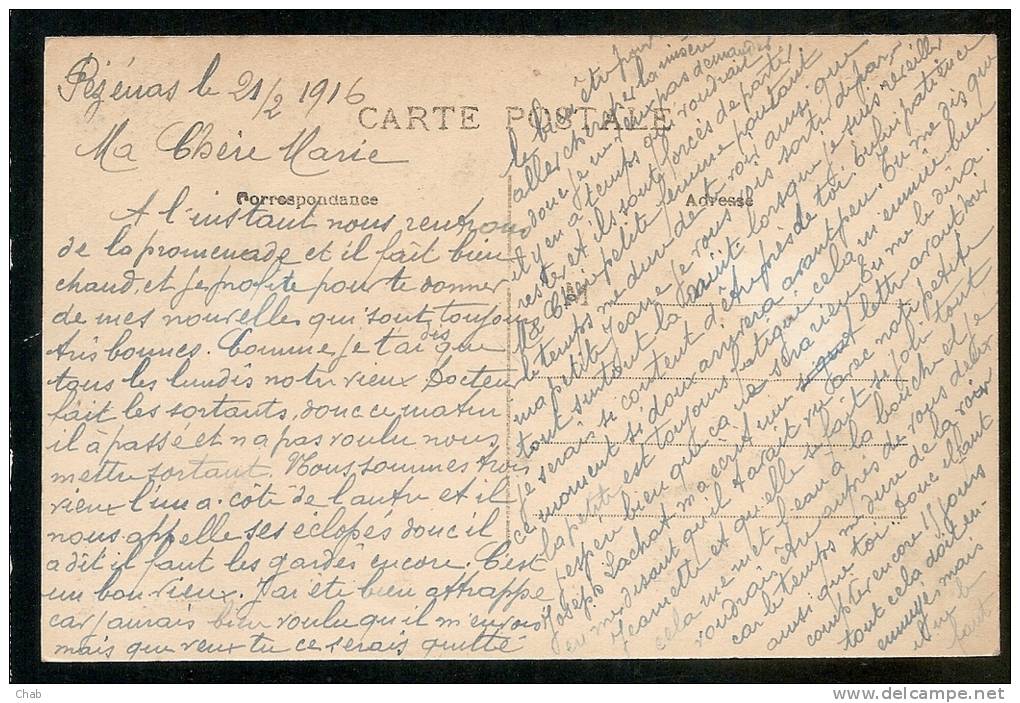 Pézénas le 21/2 1916
CARTE POSTALE
Ma Chère Marie
Correspondance
Adresse
A l'instant nous rentrons
de la promenade et il fait bien
chaud, et je profite pour te donner
de mes nouvelles qui sont toujours
très bonnes. Comme je t'ai dis que
tous les lundis notre vieux Docteur
fait les sortants, donc ce matin
il à passé et n'a pas voulu nous
mettre sortant. Nous sommes trois
vieux l'un a côté de l'autre et il
nous appelle ses éclopés donc il
a dit il faut les gardés encore. C'est
un bon vieux. J'ai été bien attrappé
car j'aurais bien voulu qu'il m'envois
mais que veux tu ce serais quitté
le bien être pour
aller chercher la misère
donc je ne veux pas demander
il y en a temps qui voudrait
rester et ils sont forcés de partir
Ma Chère petite femme pourtant
le temps me dure de te voir ainsi que
ma petite Jeanne je vous vois sortir de par
tout surtout la nuit lorsque je suis réveiller
je serais si content d'être près de toi. Enfin patience
ce moment si doux arrivera avant peu. Tu me dis que
la petite est toujours fatigué cela m'ennuie bien
j'espère bien que ça ne sera rien tu me le dira.
Joseph Lachat m'a écrit une lettre avant hier
en me disant qu'il t'avait vu avec notre petite
Jeannette et qu'elle se fait si joli tout
cela me met l'eau à la bouche et je
voudrais être auprès de vous deux
car le temps me dure de la voir
ainsi que toi. Donc il faut
compter encore 15 jours
tout cela doit en-
ennuyes mais
il
faut
Chab
delcampe.net